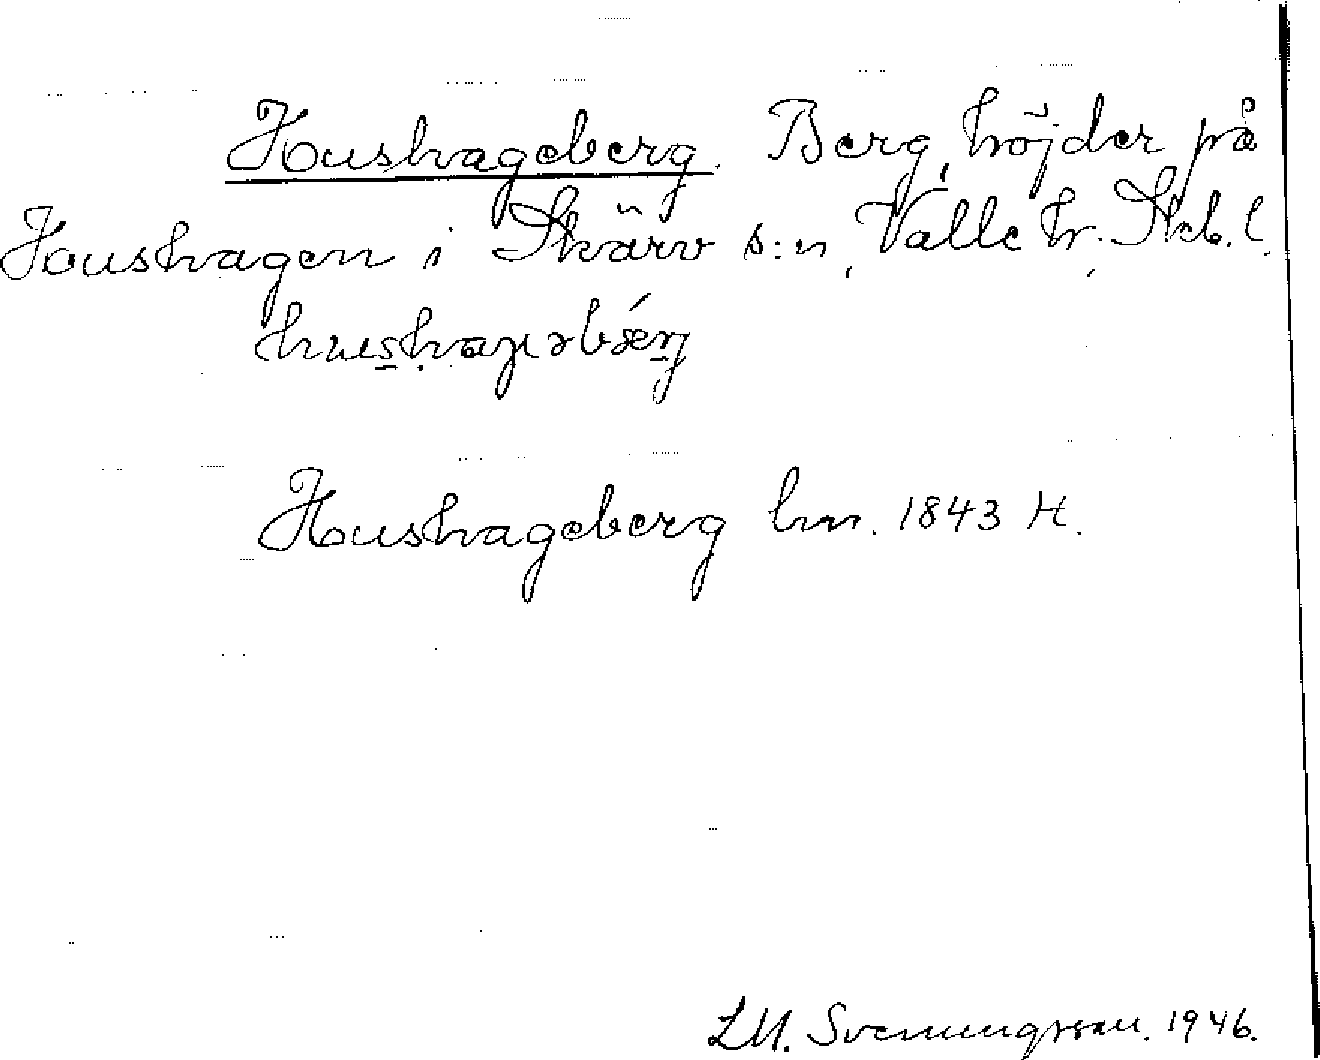 Hushageberg. Berg, höjder på
Hushagen i Skärv s:n, Valle hr. Skb. l.
Hushageberg hm. 1843 H.
LM. Svenungsson. 1946.